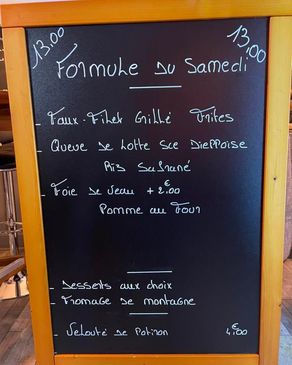 13.00 13,00
Formule du Samedi
- Faux-Filet Grillé Frites
- Queue de Lotte Sce Dieppoise
Riz Safrané
- Foie de Veau + 2€.00
Pomme au Four
- Desserts aux choix
- Fromage de montagne
- Velouté de Potiron 4€.00